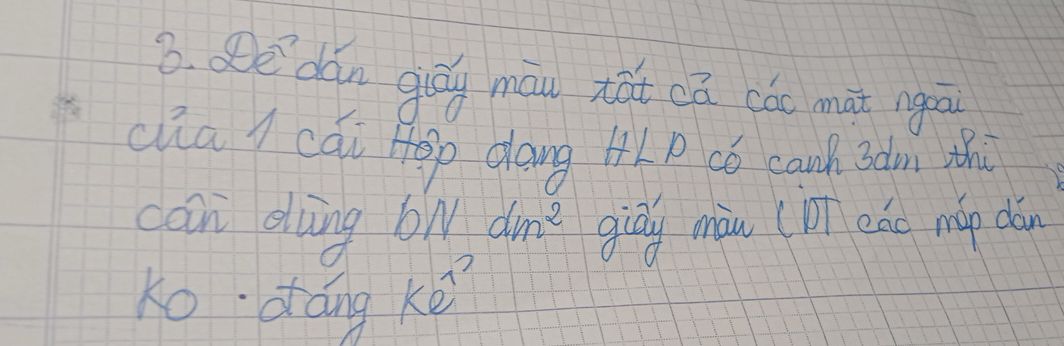 3. Để dán giấy màu tất cả các mặt ngoài
của 1 cái Hộp dạng HLP có cạnh 3dm thì
cần dùng bN dm² giấy màu (DT các mép dán
ko đáng kể